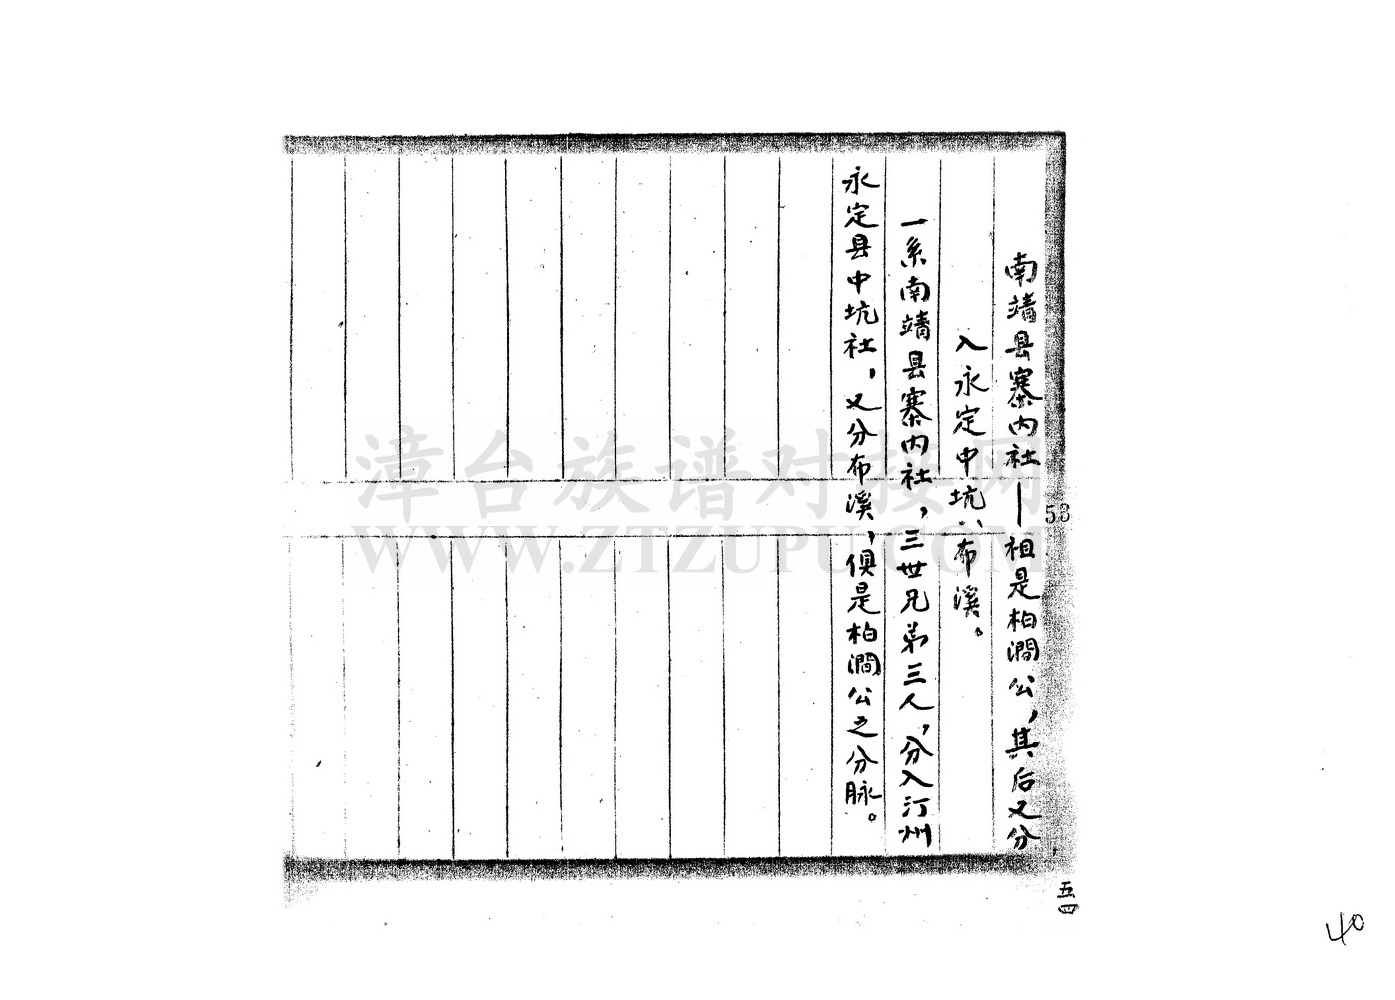 南靖县寨内社—祖是柏澗公，其后又分
入永定中坑、布溪。
一系南靖县寨内社，三世兄弟三人，分入汀州
永定县中坑社，又分布溪，俱是柏澗公之分脉。
53
五四
40
漳台族谱对接网
WWW.ZTZUPU.COM